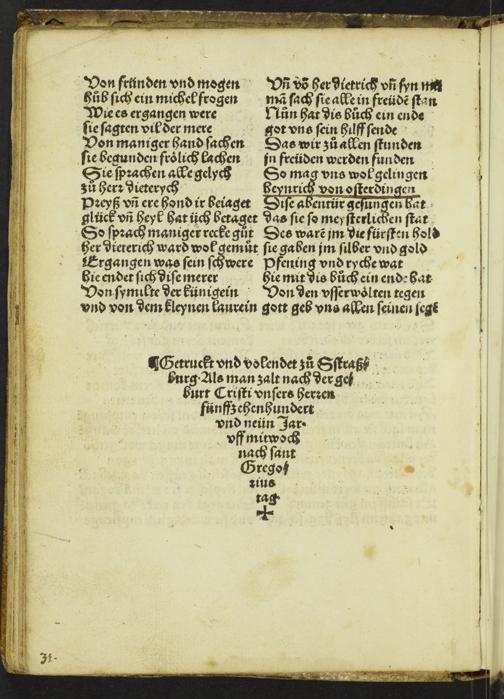 Von fründen vnd mogen
hůb sich ein michel frogen
Wie es ergangen were
sie sagten vil der mere
Von maniger hand sachen
sie begunden frölich lachen
Sie sprachen alle gelych
zů herr dieterych
Preyß vñ ere hond ir beiaget
glück vñ heyl hat üch betaget
So sprach maniger recke gůt
her dieterich ward wol gemůt
Ergangen was sein schwere
hie endet sich dise merer
Von symilte der künigein
vnd von dem kleynen laurein
Vñ võ her dietrich vñ syn
mã sach sie alle in freüdẽ stan
Nůn hat dis bůch ein ende
got vns sein hilff sende
Das wir zů allen stunden
jn freüden werden funden
So mag vns wol gelingen
heynrich von osterdingen
Dise abentür gesungen hat
das sie so meysterlichen stat
Des warẽ jm die fürsten hold
sie gaben jm silber vnd gold
Pfening vnd ryche wat
hie mit dis bůch ein ende hat
Von den vsserwölten tegen
gott geb vns allen seinen segẽ
¶Getruckt vnd volendet zů Sstraß⸗
burg·Als man zalt nach der ge⸗
burt Cristi vnsers herren
fünffzehenhundert
vnd neün Jar·
vff mitwoch
nach sant
Grego⸗
rius
tag·
✠
31·